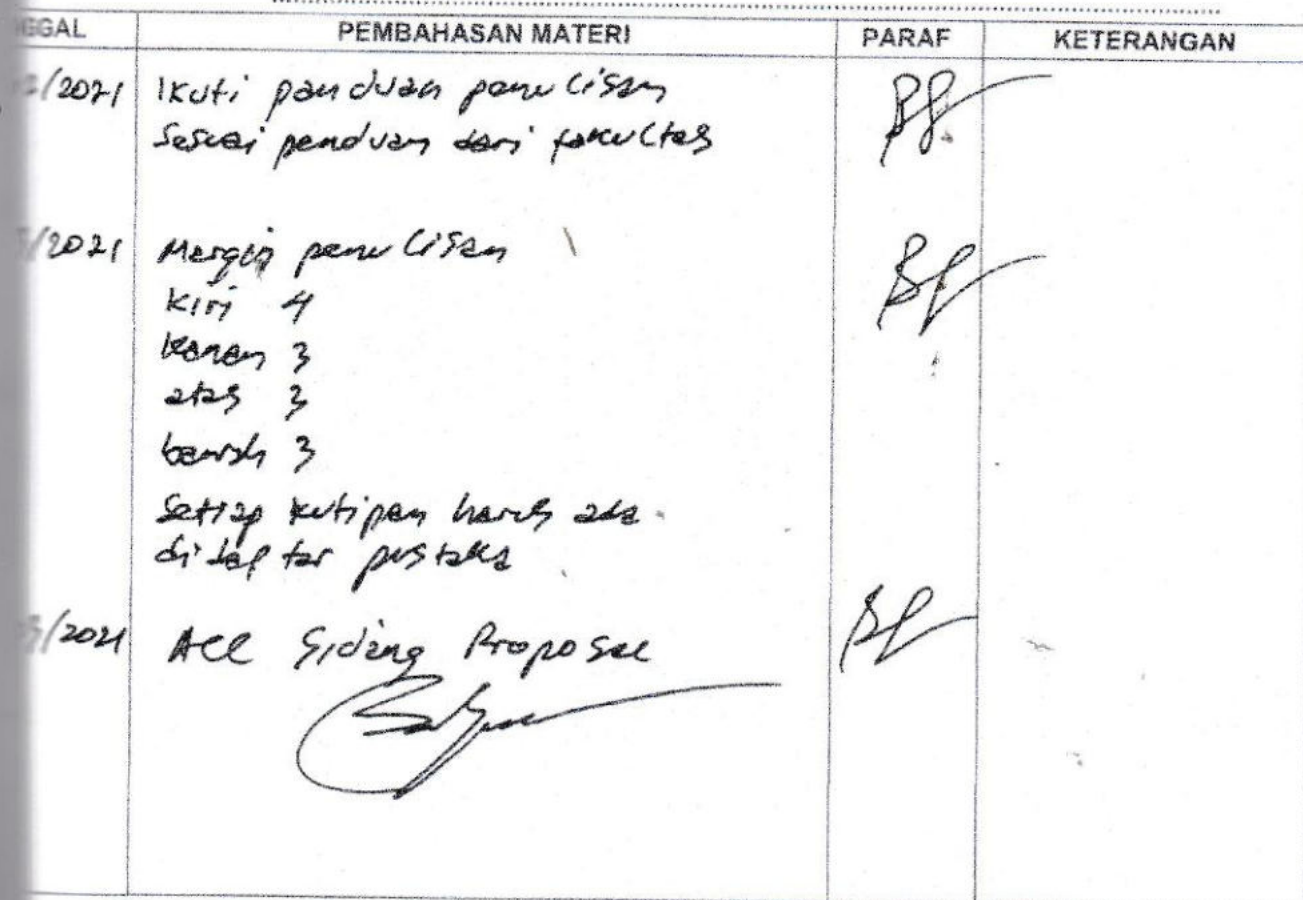 GGAL PEMBAHASAN MATERI PARAF KETERANGAN
/2021 Ikuti panduan penulisan
Sesuai panduan dari fakultas
/2021 Margin penulisan
Kiri 4
Kanan 3
atas 3
bawah 3
Setiap kutipan harus ada
di daftar pustaka
/2021 Acc Sidang Proposal